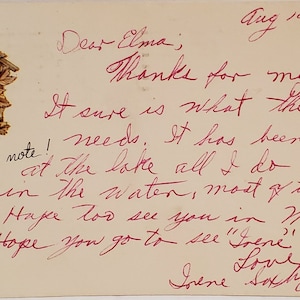 Aug 1
Dear Elma,
Thanks for m
It sure is what the
needs. It has been
note!
at the lake all I do
in the water, most of
Hope too see you in
Hope you go to see "Irene"
Love
Irene